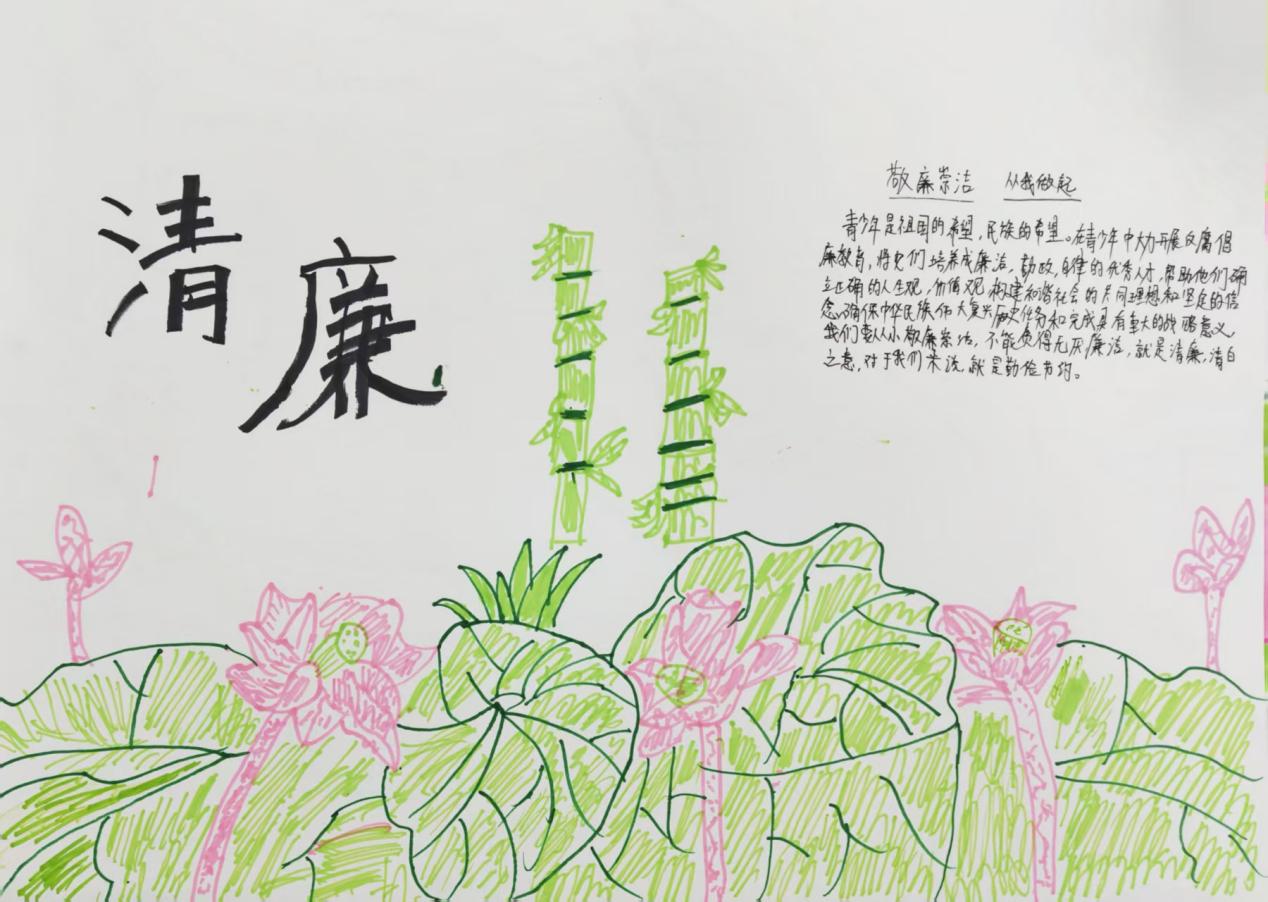 清廉
敬廉崇洁 从我做起
青少年是祖国的希望,民族的希望。在青少年中大力开展反腐倡
廉教育,将他们培养成廉洁,勤政,自律的优秀人才,帮助他们确
立正确的人生观,价值观构建和谐社会的共同理想和坚定的信
念,确保中华民族伟大复兴历史任务和完成具有重大的战略意义。
我们要从小敬廉崇洁,不能贪得无厌廉洁,就是清廉,清白
之意,对于我们来说,就是勤俭节约。